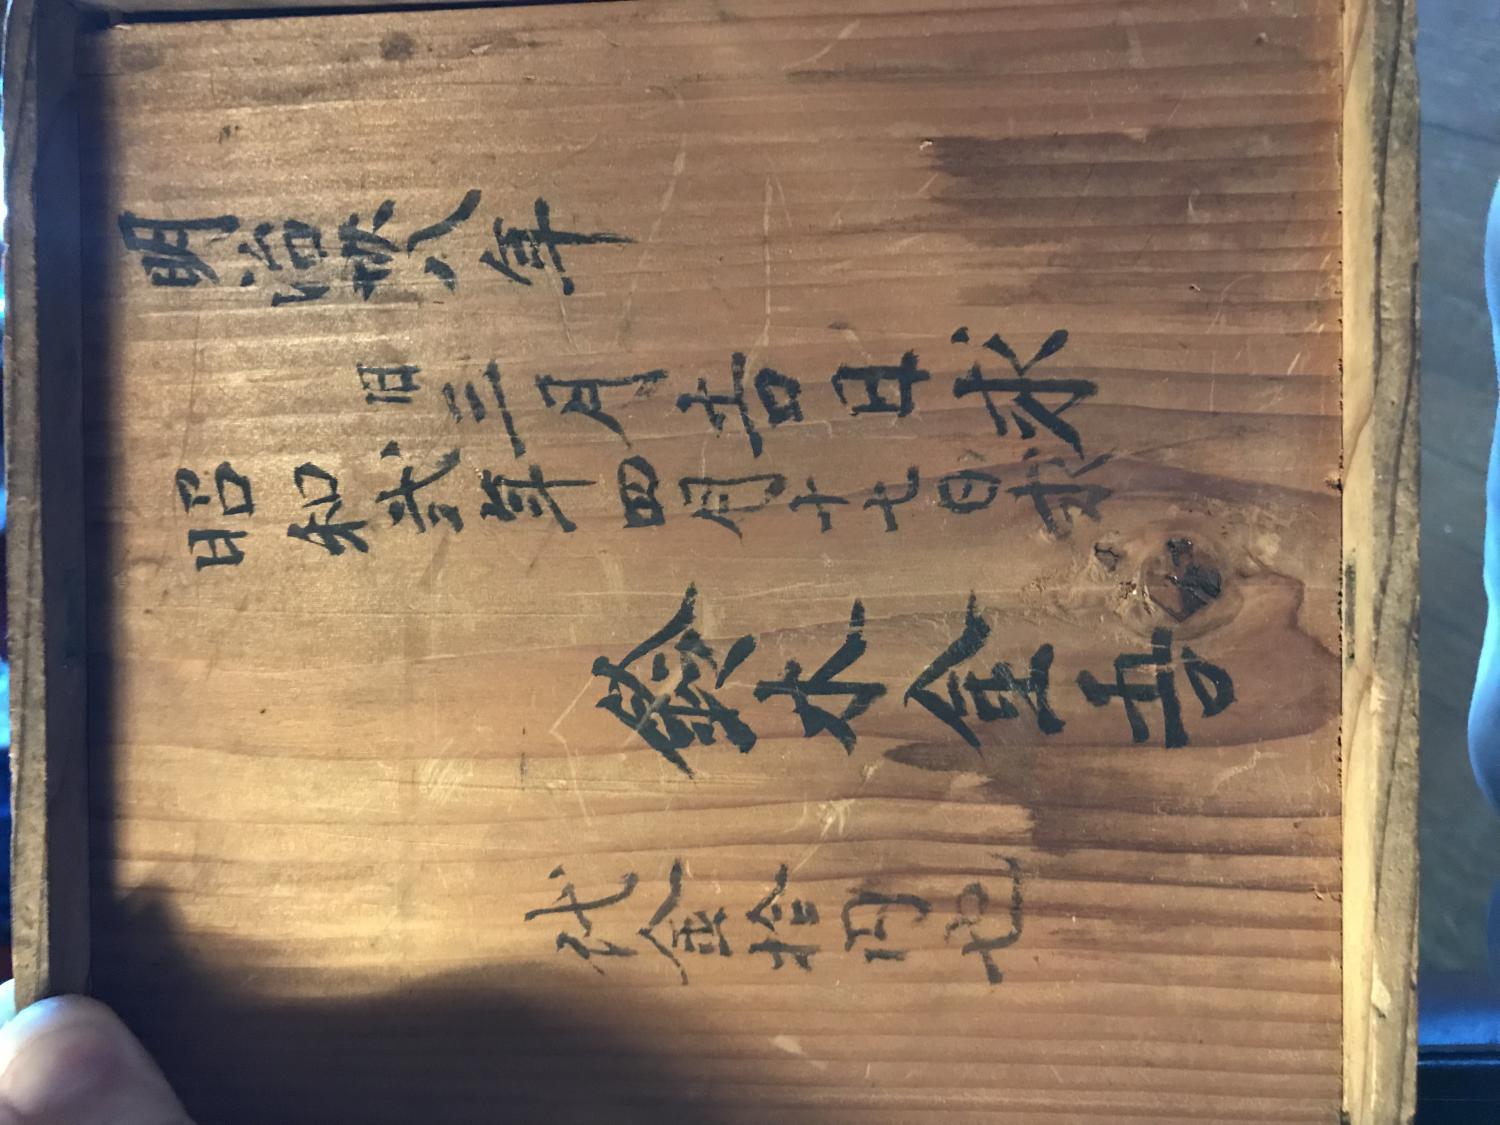 明治八年
旧三月吉日求
昭和弐年四月十七日求
鈴木金吾
代金拾円也